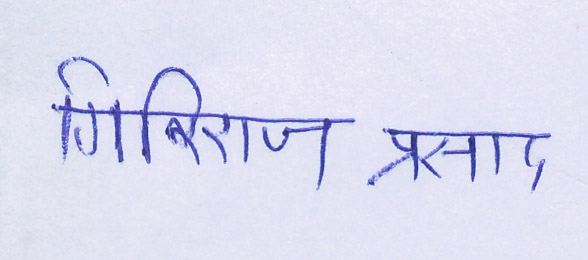 गिरिराज प्रसाद